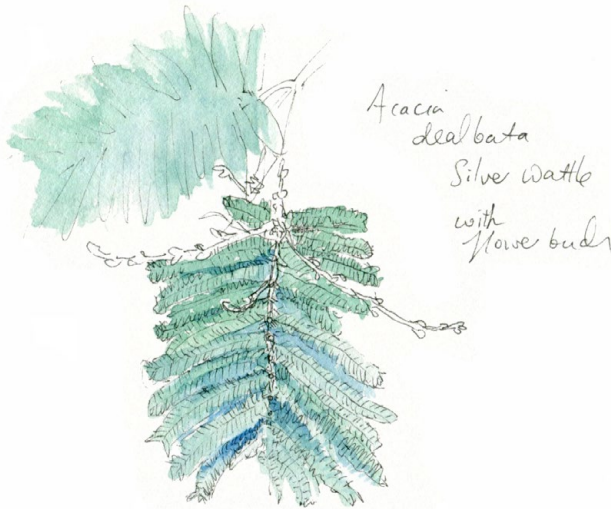 Acacia
dealbata
Silver wattle
with
flower buds